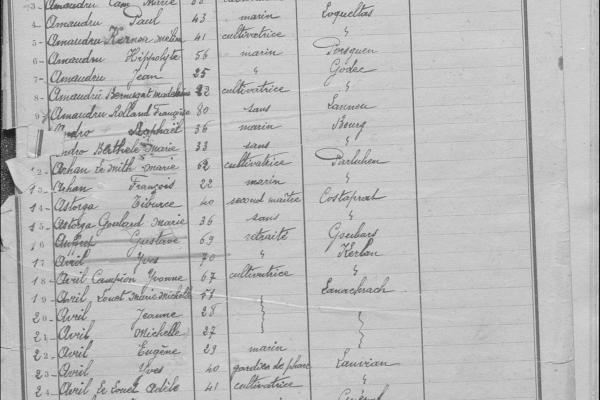 3 - Amaudru Cam Marie
4 - Amaudru Paul 43 marin Evqueltas
5 - Amaudru Kernoa 41 cultivatrice "
6 - Amaudru Hippolyte 56 marin Porsguen
7 - Amaudru Jean 25 " Godec
8 - Amaudru madeleine 22 cultivatrice "
9 - Amaudru Rolland Françoise 80 sans Lannou
Raphaël 36 marin Bourg
Berthelé Marie 33 sans "
12 - Arhan Le Mith marie 62 cultivatrice Parluhen
13 - Arhan François 22 marin "
14 - Astorga Tiburce 40 second maître Costaprat
15 - Astorga Goulard Marie 36 sans "
16 - Gustave 69 retraité
17 - Avril Yves 70 " Kerlan
18 - Avril Campion Yvonne 67 cultivatrice "
19 - Avril Louet Marie Michelle
20 - Avril Jeanne 28
21 - Avril Michelle 27
22 - Avril Eugène 29 marin
23 - Avril Yves 40 gardien de phare Lauvian
24 - Avril Le Louet Adèle 41 cultivatrice "